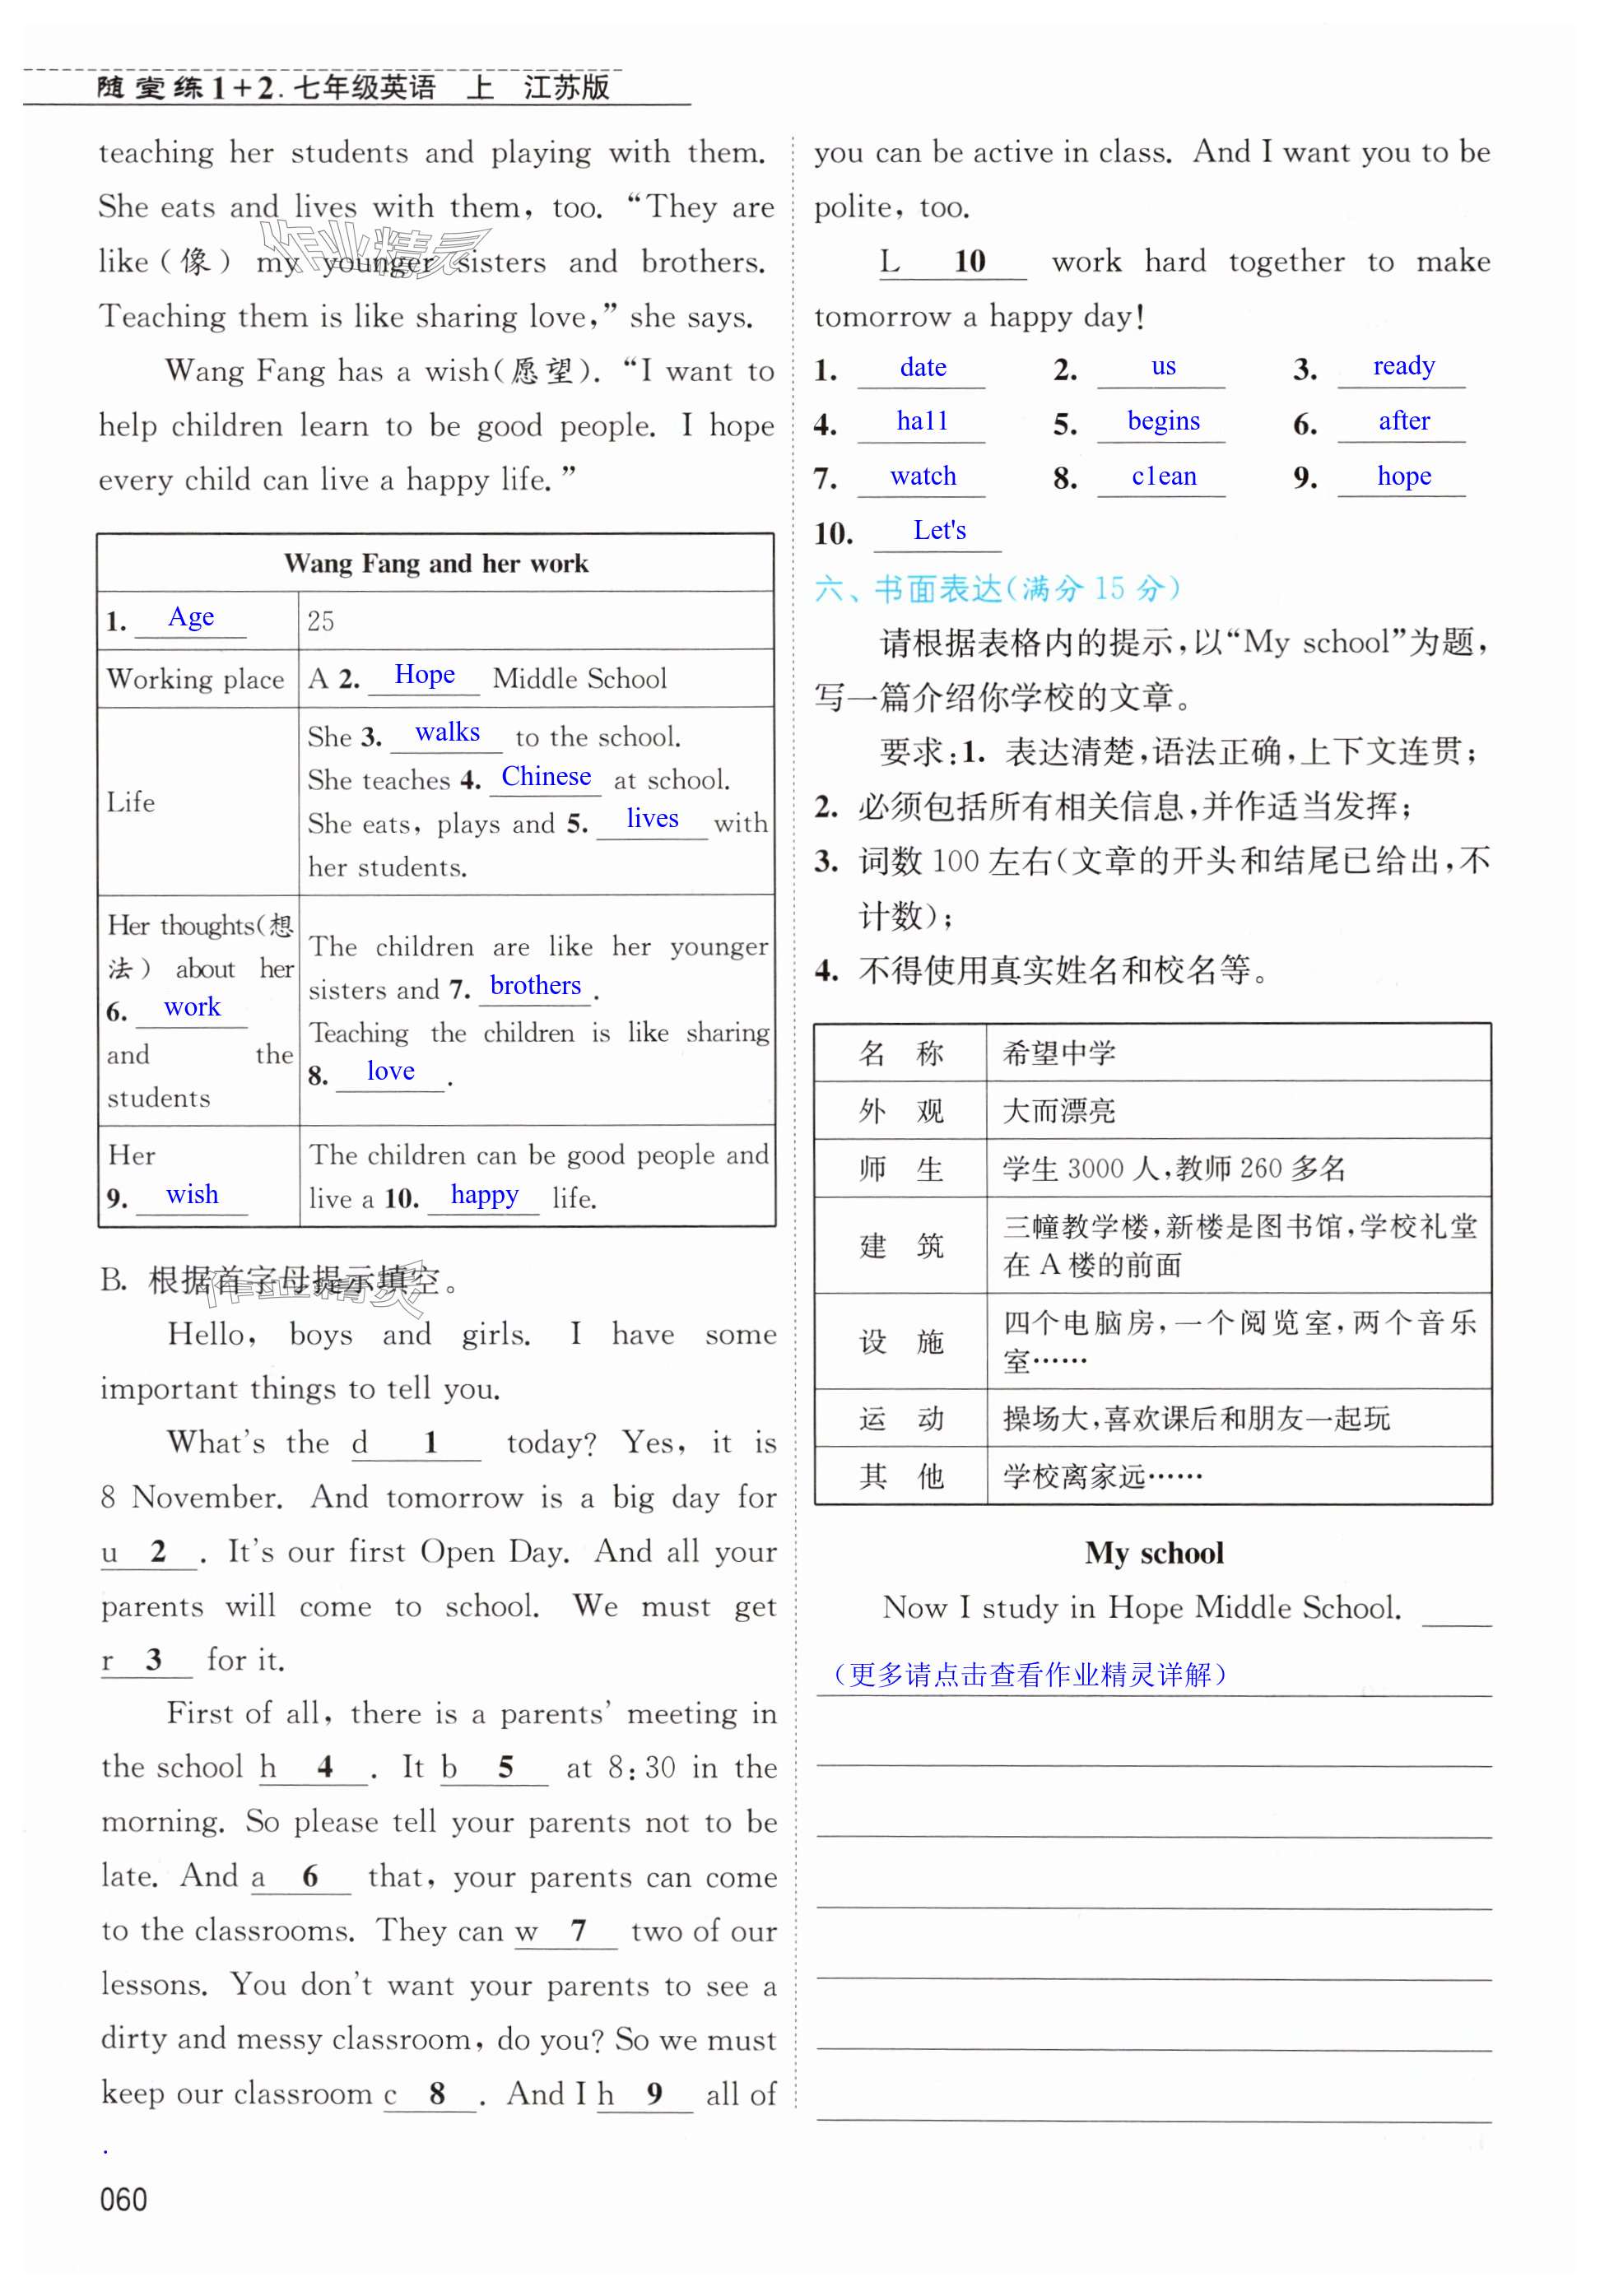 随堂练1+2.七年级英语 上 江苏版
teaching her students and playing with them.
She eats and lives with them, too. “They are
like(像) my younger sisters and brothers.
Teaching them is like sharing love,” she says.
Wang Fang has a wish(愿望). “I want to
help children learn to be good people. I hope
every child can live a happy life.”
Wang Fang and her work
1. Age
25
Working place
A 2. Hope Middle School
Life
She 3. walks to the school.
She teaches 4. Chinese at school.
She eats, plays and 5. lives with
her students.
Her thoughts(想
法) about her
6. work
and the
students
The children are like her younger
sisters and 7. brothers.
Teaching the children is like sharing
8. love.
Her
9. wish
The children can be good people and
live a 10. happy life.
B. 根据首字母提示填空。
Hello, boys and girls. I have some
important things to tell you.
What's the d 1 today? Yes, it is
8 November. And tomorrow is a big day for
u 2 . It's our first Open Day. And all your
parents will come to school. We must get
r 3 for it.
First of all, there is a parents' meeting in
the school h 4 . It b 5 at 8:30 in the
morning. So please tell your parents not to be
late. And a 6 that, your parents can come
to the classrooms. They can w 7 two of our
lessons. You don't want your parents to see a
dirty and messy classroom, do you? So we must
keep our classroom c 8 . And I h 9 all of
.
060
you can be active in class. And I want you to be
polite, too.
L 10 work hard together to make
tomorrow a happy day!
1. date 2. us 3. ready
4. ha11 5. begins 6. after
7. watch 8. c1ean 9. hope
10. Let's
六、书面表达(满分 15 分)
请根据表格内的提示,以“My school”为题,
写一篇介绍你学校的文章。
要求:1. 表达清楚,语法正确,上下文连贯;
2. 必须包括所有相关信息,并作适当发挥;
3. 词数 100 左右(文章的开头和结尾已给出,不
计数);
4. 不得使用真实姓名和校名等。
名 称 希望中学
外 观 大而漂亮
师 生 学生 3000 人,教师 260 多名
建 筑 三幢教学楼,新楼是图书馆,学校礼堂
在 A 楼的前面
设 施 四个电脑房,一个阅览室,两个音乐
室……
运 动 操场大,喜欢课后和朋友一起玩
其 他 学校离家远……
My school
Now I study in Hope Middle School.
(更多请点击查看作业精灵详解)
作业精灵
作业精灵